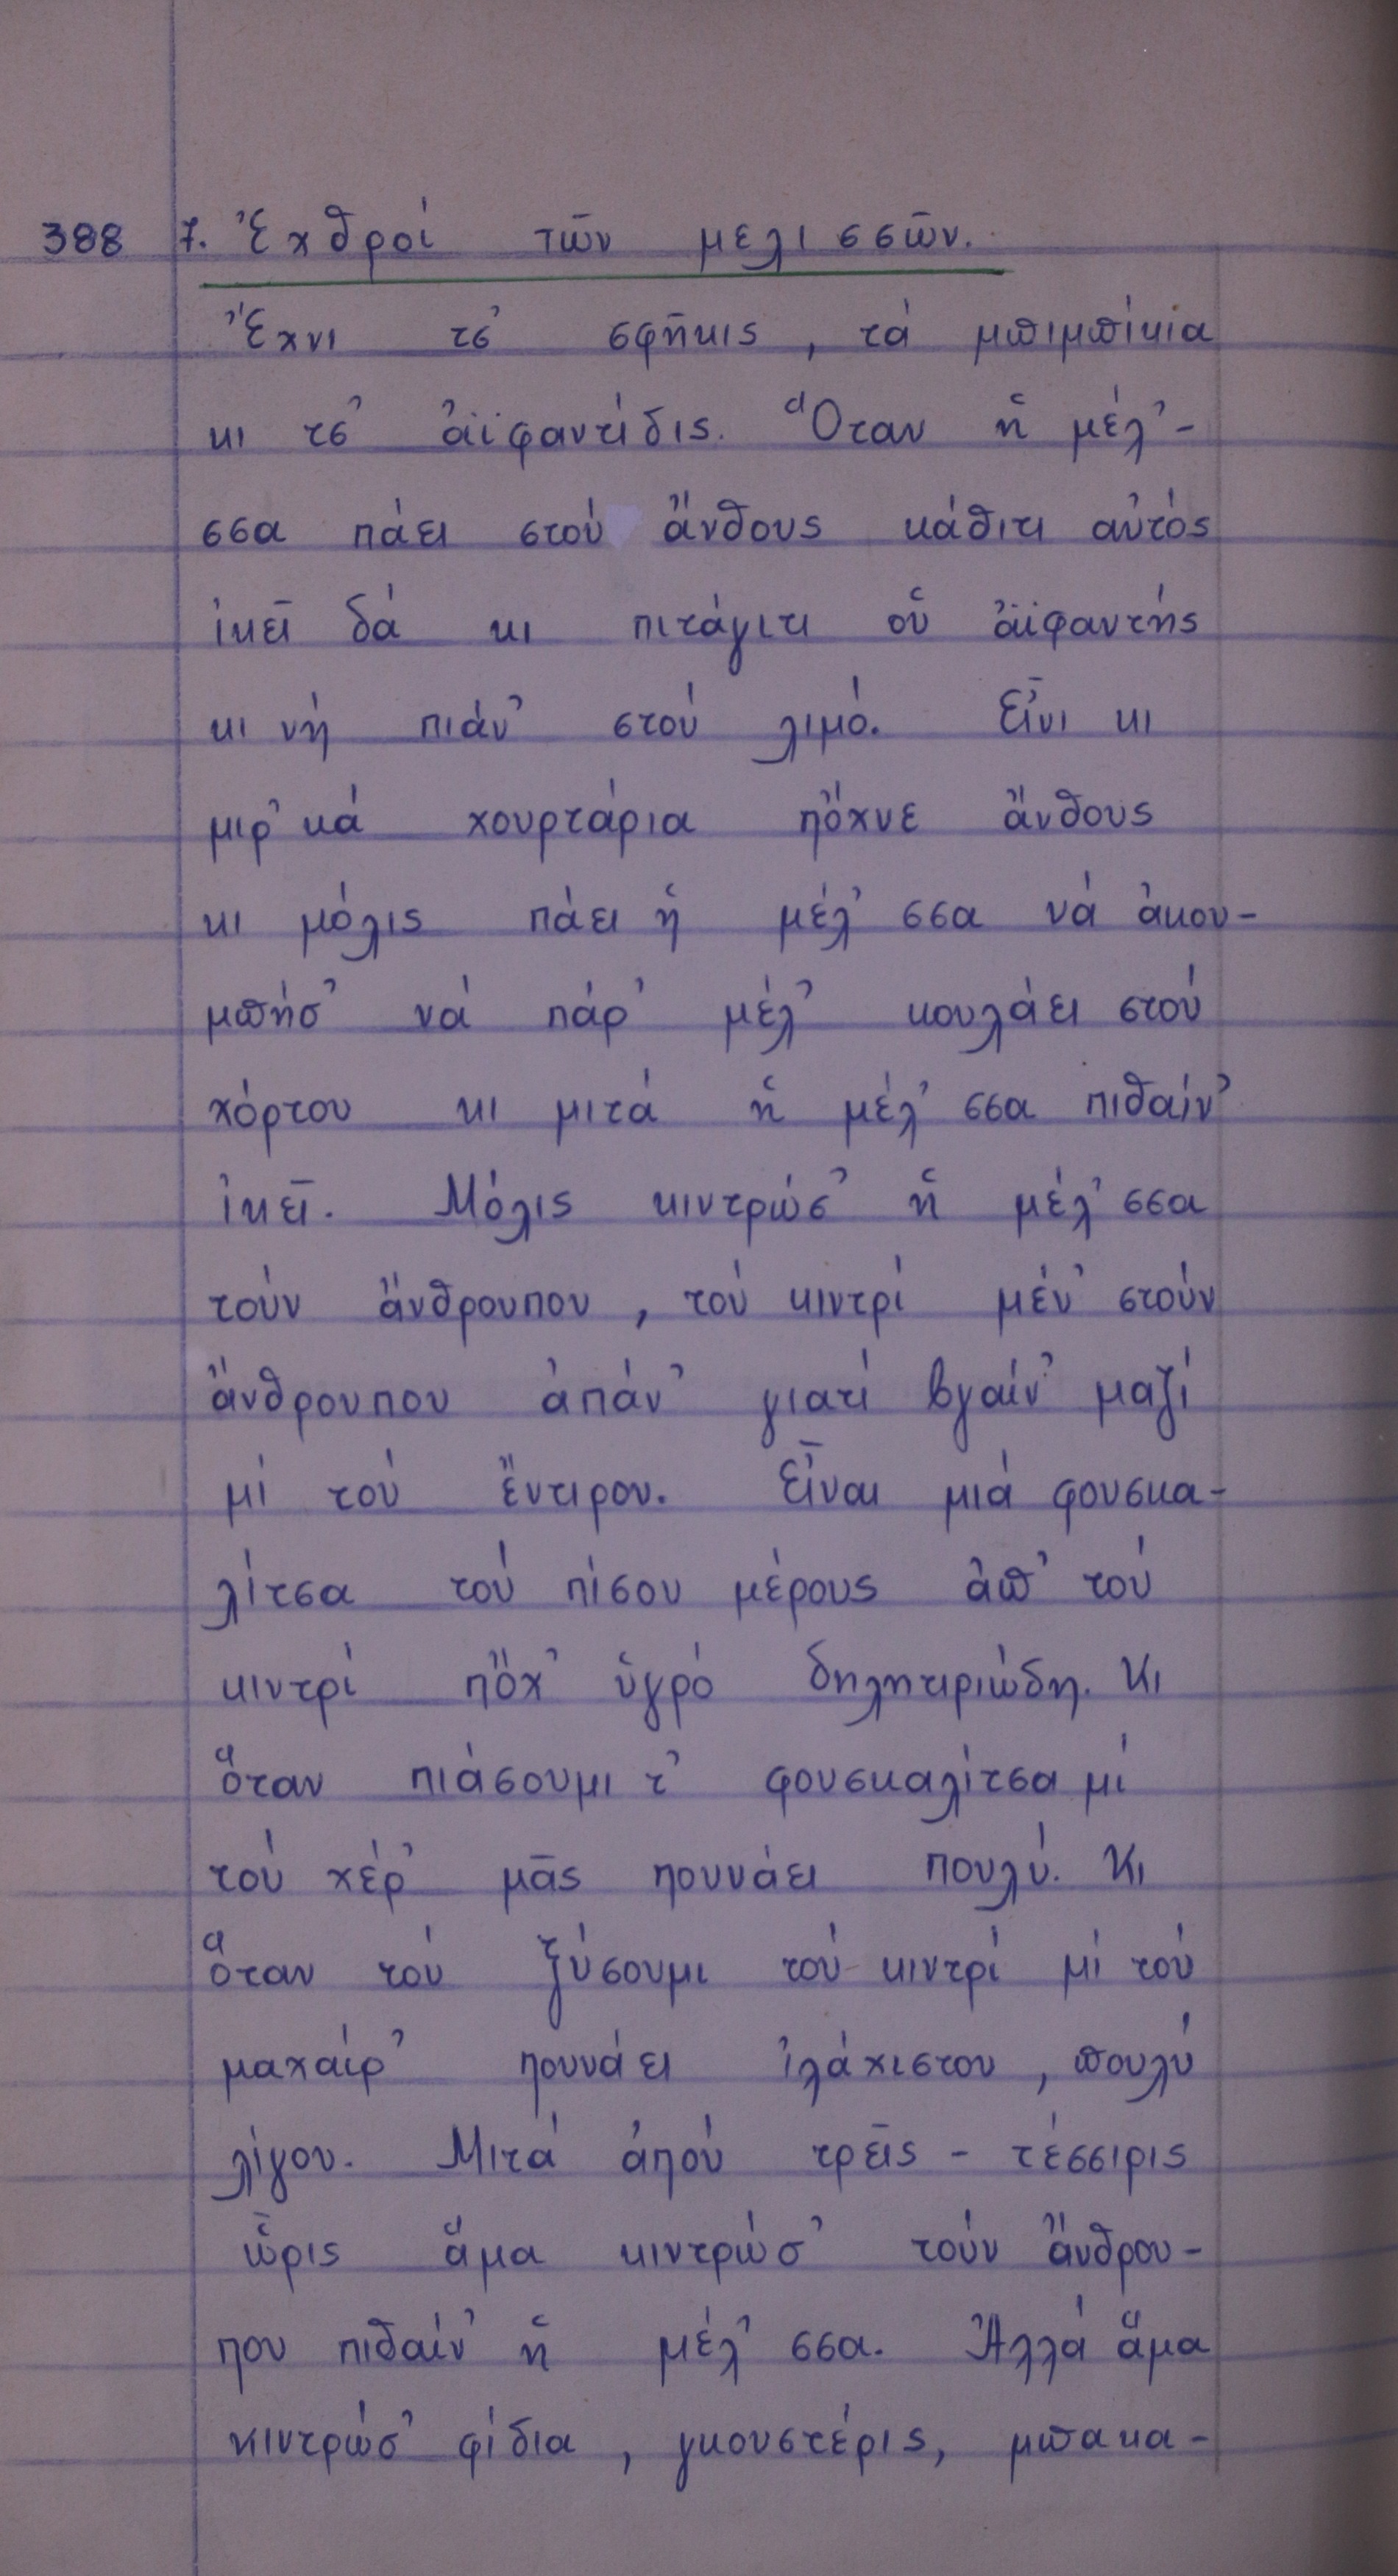 388 7. Ἐχθροί τῶν μελισσῶν.
Ἔχνι τσ' σφῆκις, τά μπιμπίκια
κι τσ' ἀϊφαντίδις. Ὅταν ἡ μέλ'-
σσα πάει στού ἄνθους κάθιτι αὐτός
ἰκεῖ δά κι πιτάγιτι οὑ ἀϊφαντής
κι νή πιάν' στού λιμό. Εἶνι κι
μιρ'κά χουρτάρια πὄχνε ἄνθους
κι μόλις πάει ἡ μέλ'σσα νά ἀκου-
μπήσ' νά πάρ' μέλ' κουλάει στού
χόρτου κι μιτά ἡ μέλ'σσα πιθαίν'
ἰκεῖ. Μόλις κιντρώσ' ἡ μέλ'σσα
τούν ἄνθρουπου, τού κιντρί μέν' στούν
ἄνθρουπου ἀπάν' γιατί βγαίν' μαζί
μί τού ἔντιρου. Εἶναι μιά φουσκα-
λίτσα τού πίσου μέρους ἀπ' τού
κιντρί πὄχ' ὑγρό δηλητιριώδη. Κι
ὅταν πιάσουμι τ' φουσκαλίτσα μί
τού χέρ' μᾶς πουνάει πουλύ. Κι
ὅταν τού ξύσουμι τού κιντρί μί τού
μαχαίρ' πουνάει ἰλάχιστου, πουλύ
λίγου. Μιτά ἀπού τρεῖς - τέσσιρις
ὧρις ἅμα κιντρώσ' τούν ἄνθρου-
που πιθαίν' ἡ μέλ'σσα. Ἀλλά ἅμα
κιντρώσ' φίδια, γκουστέρις, μπακα-